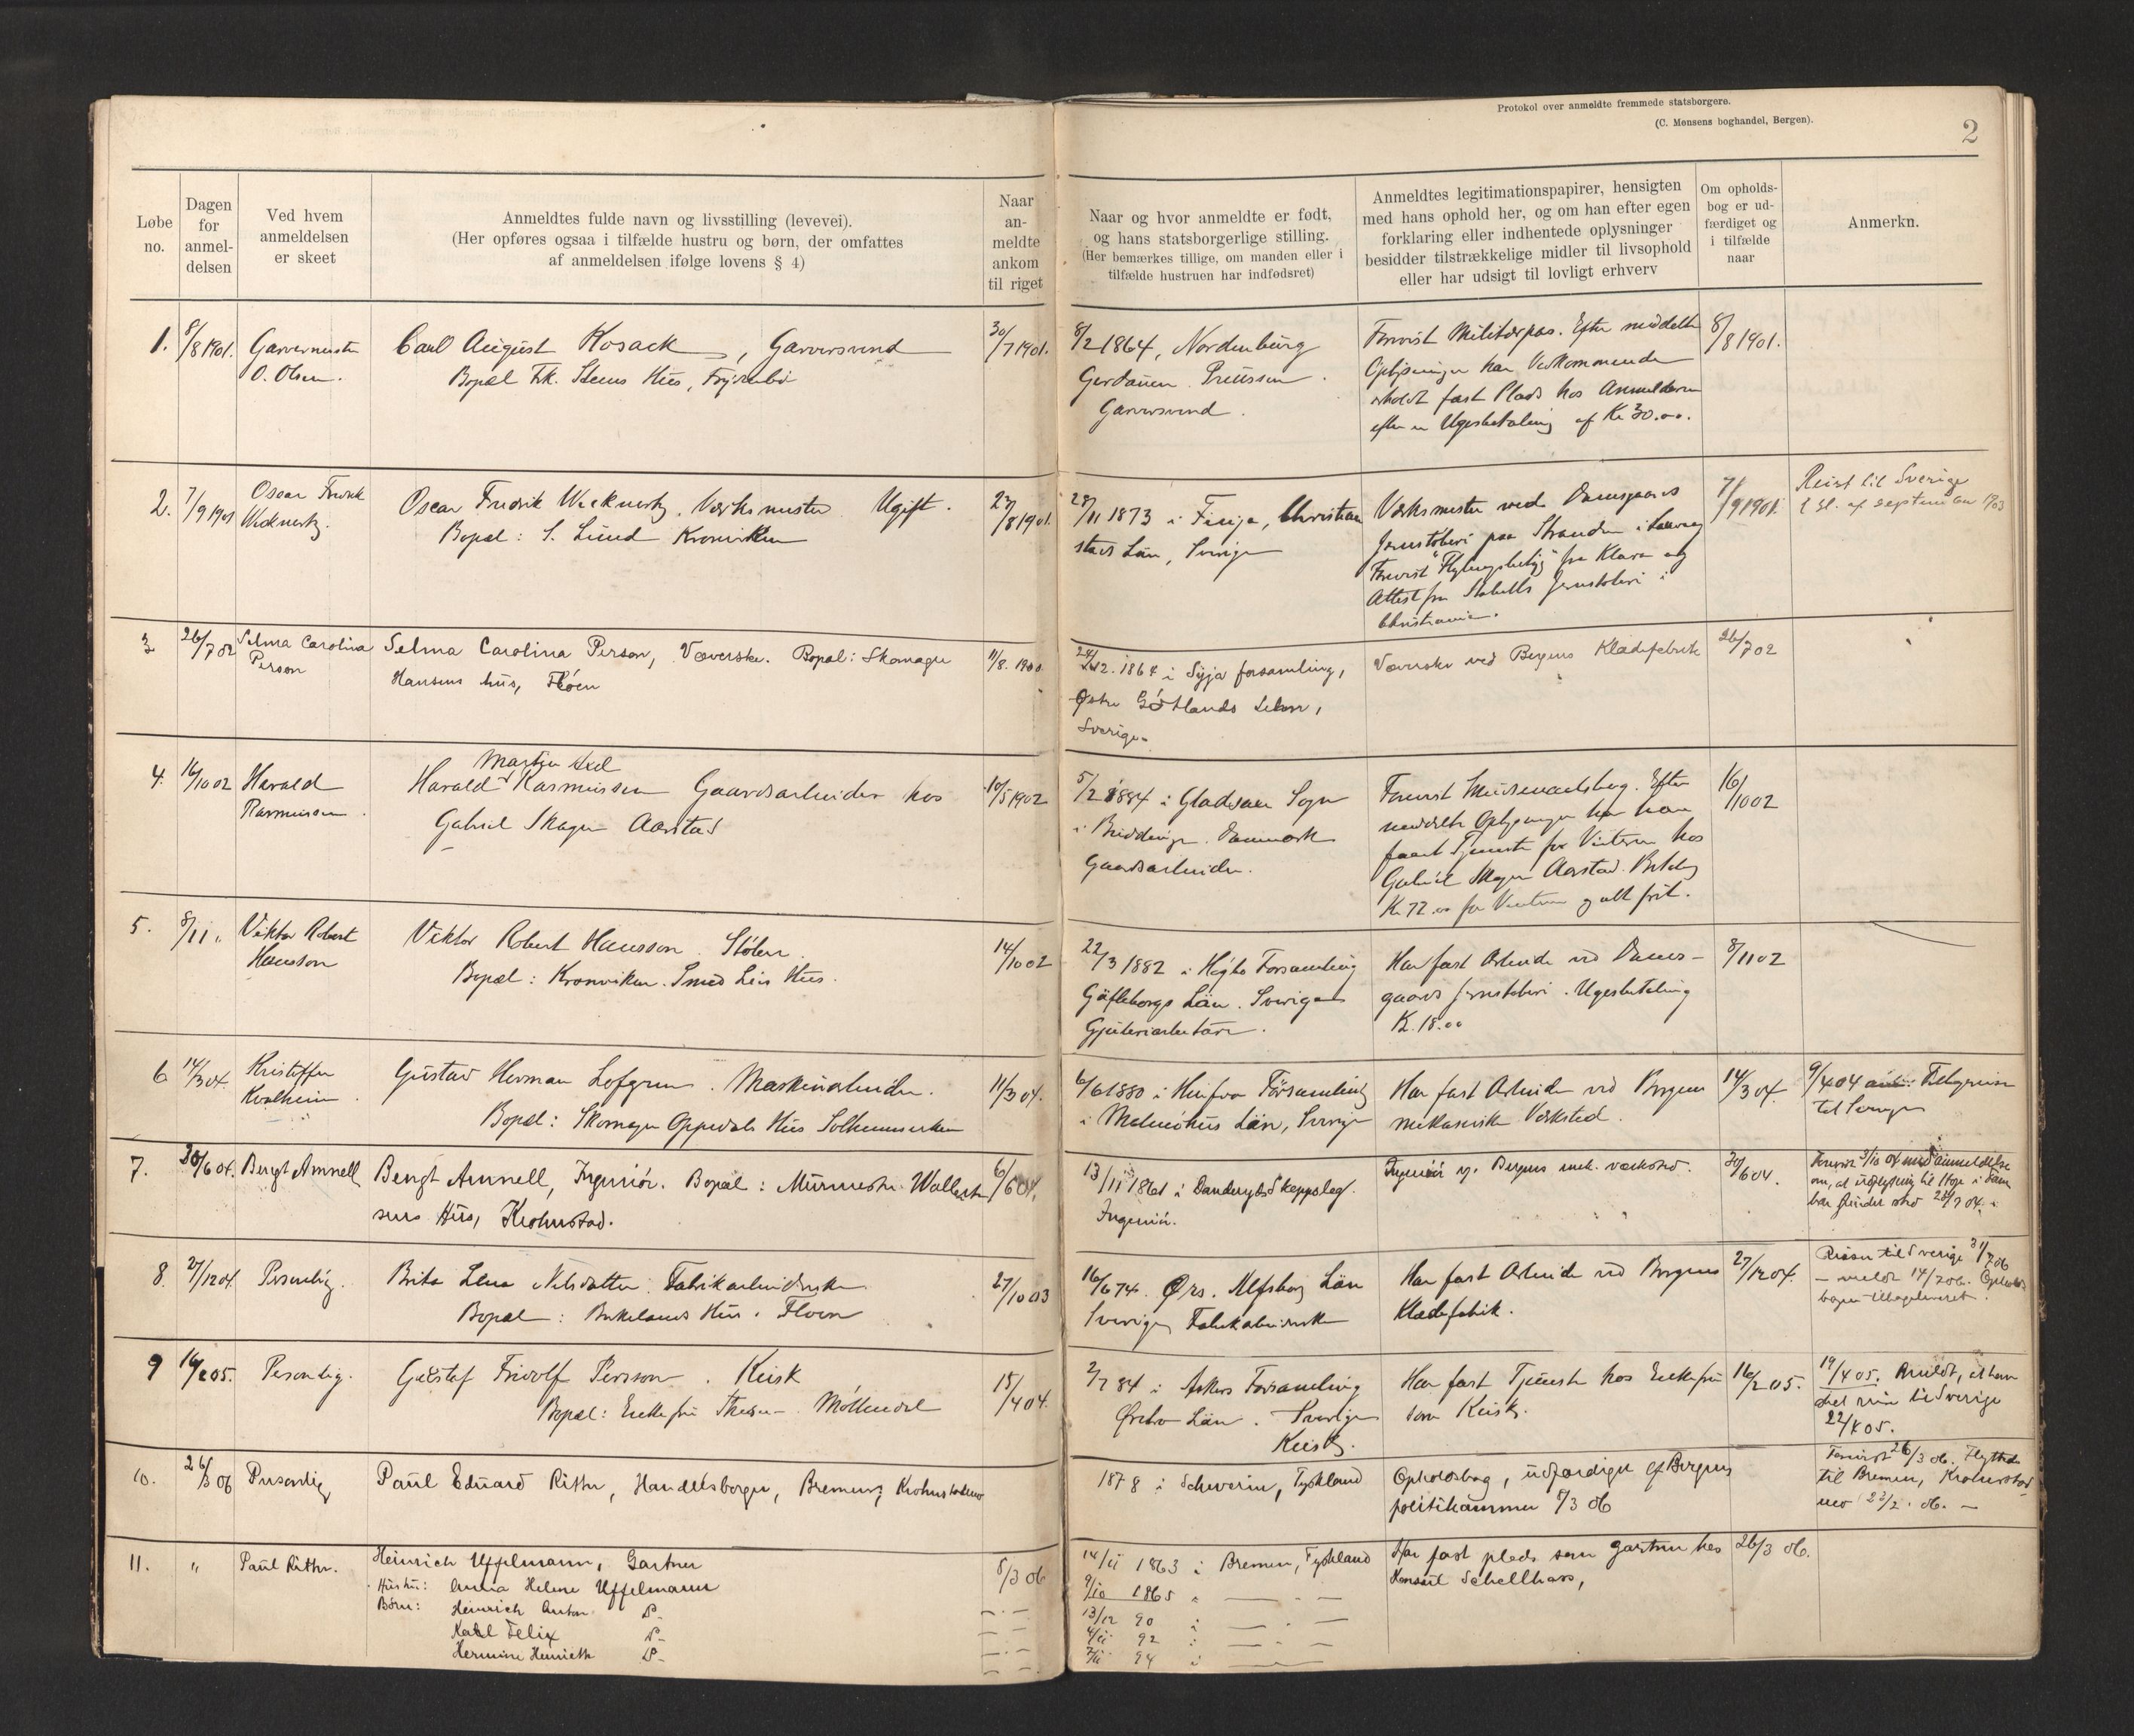 Protokol over anmeldte fremmede statsborgere.
(C. Monsens boghandel, Bergen).
2
Løbe no.
Dagen for anmel- delsen
Ved hvem anmeldelsen er skeet
Anmeldtes fulde navn og livsstilling (levevei).
(Her opføres ogsaa i tilfælde hustru og børn, der omfattes
af anmeldelsen ifølge lovens § 4)
Naar an- meldte ankom til riget
Naar og hvor anmeldte er født,
og hans statsborgerlige stilling.
(Her bemærkes tillige, om manden eller i
tilfælde hustruen har indfødsret)
Anmeldtes legitimationspapirer, hensigten
med hans ophold her, og om han efter egen
forklaring eller indhentede oplysninger
besidder tilstrækkelige midler til livsophold
eller har udsigt til lovligt erhverv
Om opholds- bog er ud- færdiget og i tilfælde naar
Anmerkn.
1.
8/8 1901.
Garvermester
O. Olsen.
Carl August Kosack, Garversvend
Bopæl Frk. Steens Hus,
30/7 1901.
8/2 1864, Nordenburg
Gerdauen Preussen.
Garversvend.
Forevist Militærpas. Efter meddelte
Oplysninger har Vedkommende
erholdt fast Plads hos Anmelderen
efter en Ugesbetaling af Kr 30.00.
8/8 1901.
2.
7/9 1901
Oscar Fredrik
Wecknertz.
Oscar Fredrik Wecknertz. Værksmester. Ugift.
Bopæl: S. Lund Kronviken
27/8 1901.
28/11 1873 i Finja, Christian
stads Län, Sverige
Værksmester ved Damsgaards
Jernstøberi paa Stranden i Laxevaag
Forevist "Flytningsbetyg" fra Klara og
Attest fra Jernstøberi i
Christiania.
7/9 1901.
Reist til Sverige
i Sl. af September 1903
3
26/7 02
Selma Carolina
Person
Selma Carolina Person, Væverske. Bopæl: Skomager
Hansens hus, Floen
11/8. 1900
24/12. 1864 i forsamling,
Østre Götlands Lehn,
Sverige.
Væverske ved Bergens Klædefabrik
26/7 02
4.
16/10 02
Harald
Rasmussen.
Martin Axel
Harald Rasmussen Gaardsarbeider hos
Gabriel Skagen Aarstad
10/5 1902
5/2 1884 i Gladsaxe Sogn
i Buddinge. Danmark
Gaardsarbeider.
Forevist Skudsmaalsbog. Efter
meddelte Oplysninger har han
faaet Tjeneste for Vinteren hos
Gabriel Skagen Aarstad. Betaling
Kr 72.00 for Vinteren og alt frit.
16/10 02
5.
8/11 "
Viktor Robert
Hansson
Viktor Robert Hansson. Støber.
Bopæl: Kronviken. Smed Lies Hus.
14/10 02
22/3 1882 i Högbo Forsamling
Gäfleborgs Län. Sverige
Gjuteriarbetare.
Har fast Arbeide ved Dams-
gaards Jernstøberi. Ugesbetaling
Kr. 18.00
8/11 02
6
14/3 04.
Kristoffer
Kvalheim.
Gustav Herman Lofgren. Maskinarbeider.
Bopæl: Skomager Oppedals Hus Solheimsviken
11/3 04.
6/6 1880 i Församling
i Malmöhus Län, Sverige
Har fast Arbeide ved Bergens
mekaniske Værksted.
14/3 04.
9/4 04
til Sverige
7.
30/6 04.
Bengt Amnell
Bengt Amnell, Ingeniör. Bopæl: Murmester Wallend
sens Hus, Krohnstad.
6/6 04.
13/11 1861 i Danderyds Skeppslag.
Ingeniör.
Ingeniör v. Bergens mek. værksted.
30/6 04.
8.
27/12 04.
Personlig.
Brita Lena Nilsdatter. Fabrikarbeiderske
Bopæl: Birkelands Hus. Floen
27/10 03
16/6 74. Örs. Elfsborg Län
Sverige, Fabrikarbeiderske
Har fast Arbeide ved Bergens
Klædefabrik.
27/12 04.
Reiser til Sverige 31/7 06
— meldt 14/7 06. Opholds
bogen tilbageleveret.
9
16/2 05.
Personlig.
Gustaf Fridolf Persson. Kusk
Bopæl: Enkefru Møllendal
15/4 04.
2/7 84 i Askers Forsamling
Örebro Län. Sverige
Kusk.
Har fast Tjeneste hos Enkefru
som Kusk.
16/2 05.
19/4 05. Anmeldt, at han
skal reise til Sverige
22/4 05.
10.
26/3 06
Personlig
Paul Eduard Ritter, Handelsborger, Krohnstad
1878 i Schwerin, Tyskland
Opholdsbog, udfærdiget af Bergens
politikammer 8/3 06
Forevist 26/3 06. Flyttet
til Bremen, Krohnstad
22/2. 06. —
11.
"
Paul Ritter.
Heinrich Uffelmann, Gartner
Hustru: Anna Helene Uffelmann
Børn: Heinrich Anton D-
Karl Felix D-
Hermine Henriette D-
8/3 06
14/11 1863 i Bremen, Tyskland
9/10 1865 "
13/12 90 "
4/11 92 "
7/11 94 "
Har fast plads som gartner hos
Konsul Schellhass,
26/3 06.